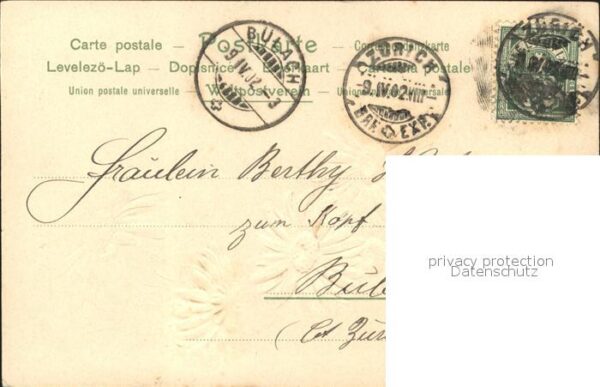 Carte postale — Postkarte — Correspondenzkarte
Levelező-Lap — Dopisnice — Briefkaart — Cartolina postale
Union postale universelle — Weltpostverein — Union postale
BÜLACH
9.IV.02.-3
ZÜRICH
9.IV.02.VIII-
BRF. EXP.
ZÜRICH
Fräulein Berthy
zum Kopf
Bül
Ct Zür
privacy protection
Datenschutz